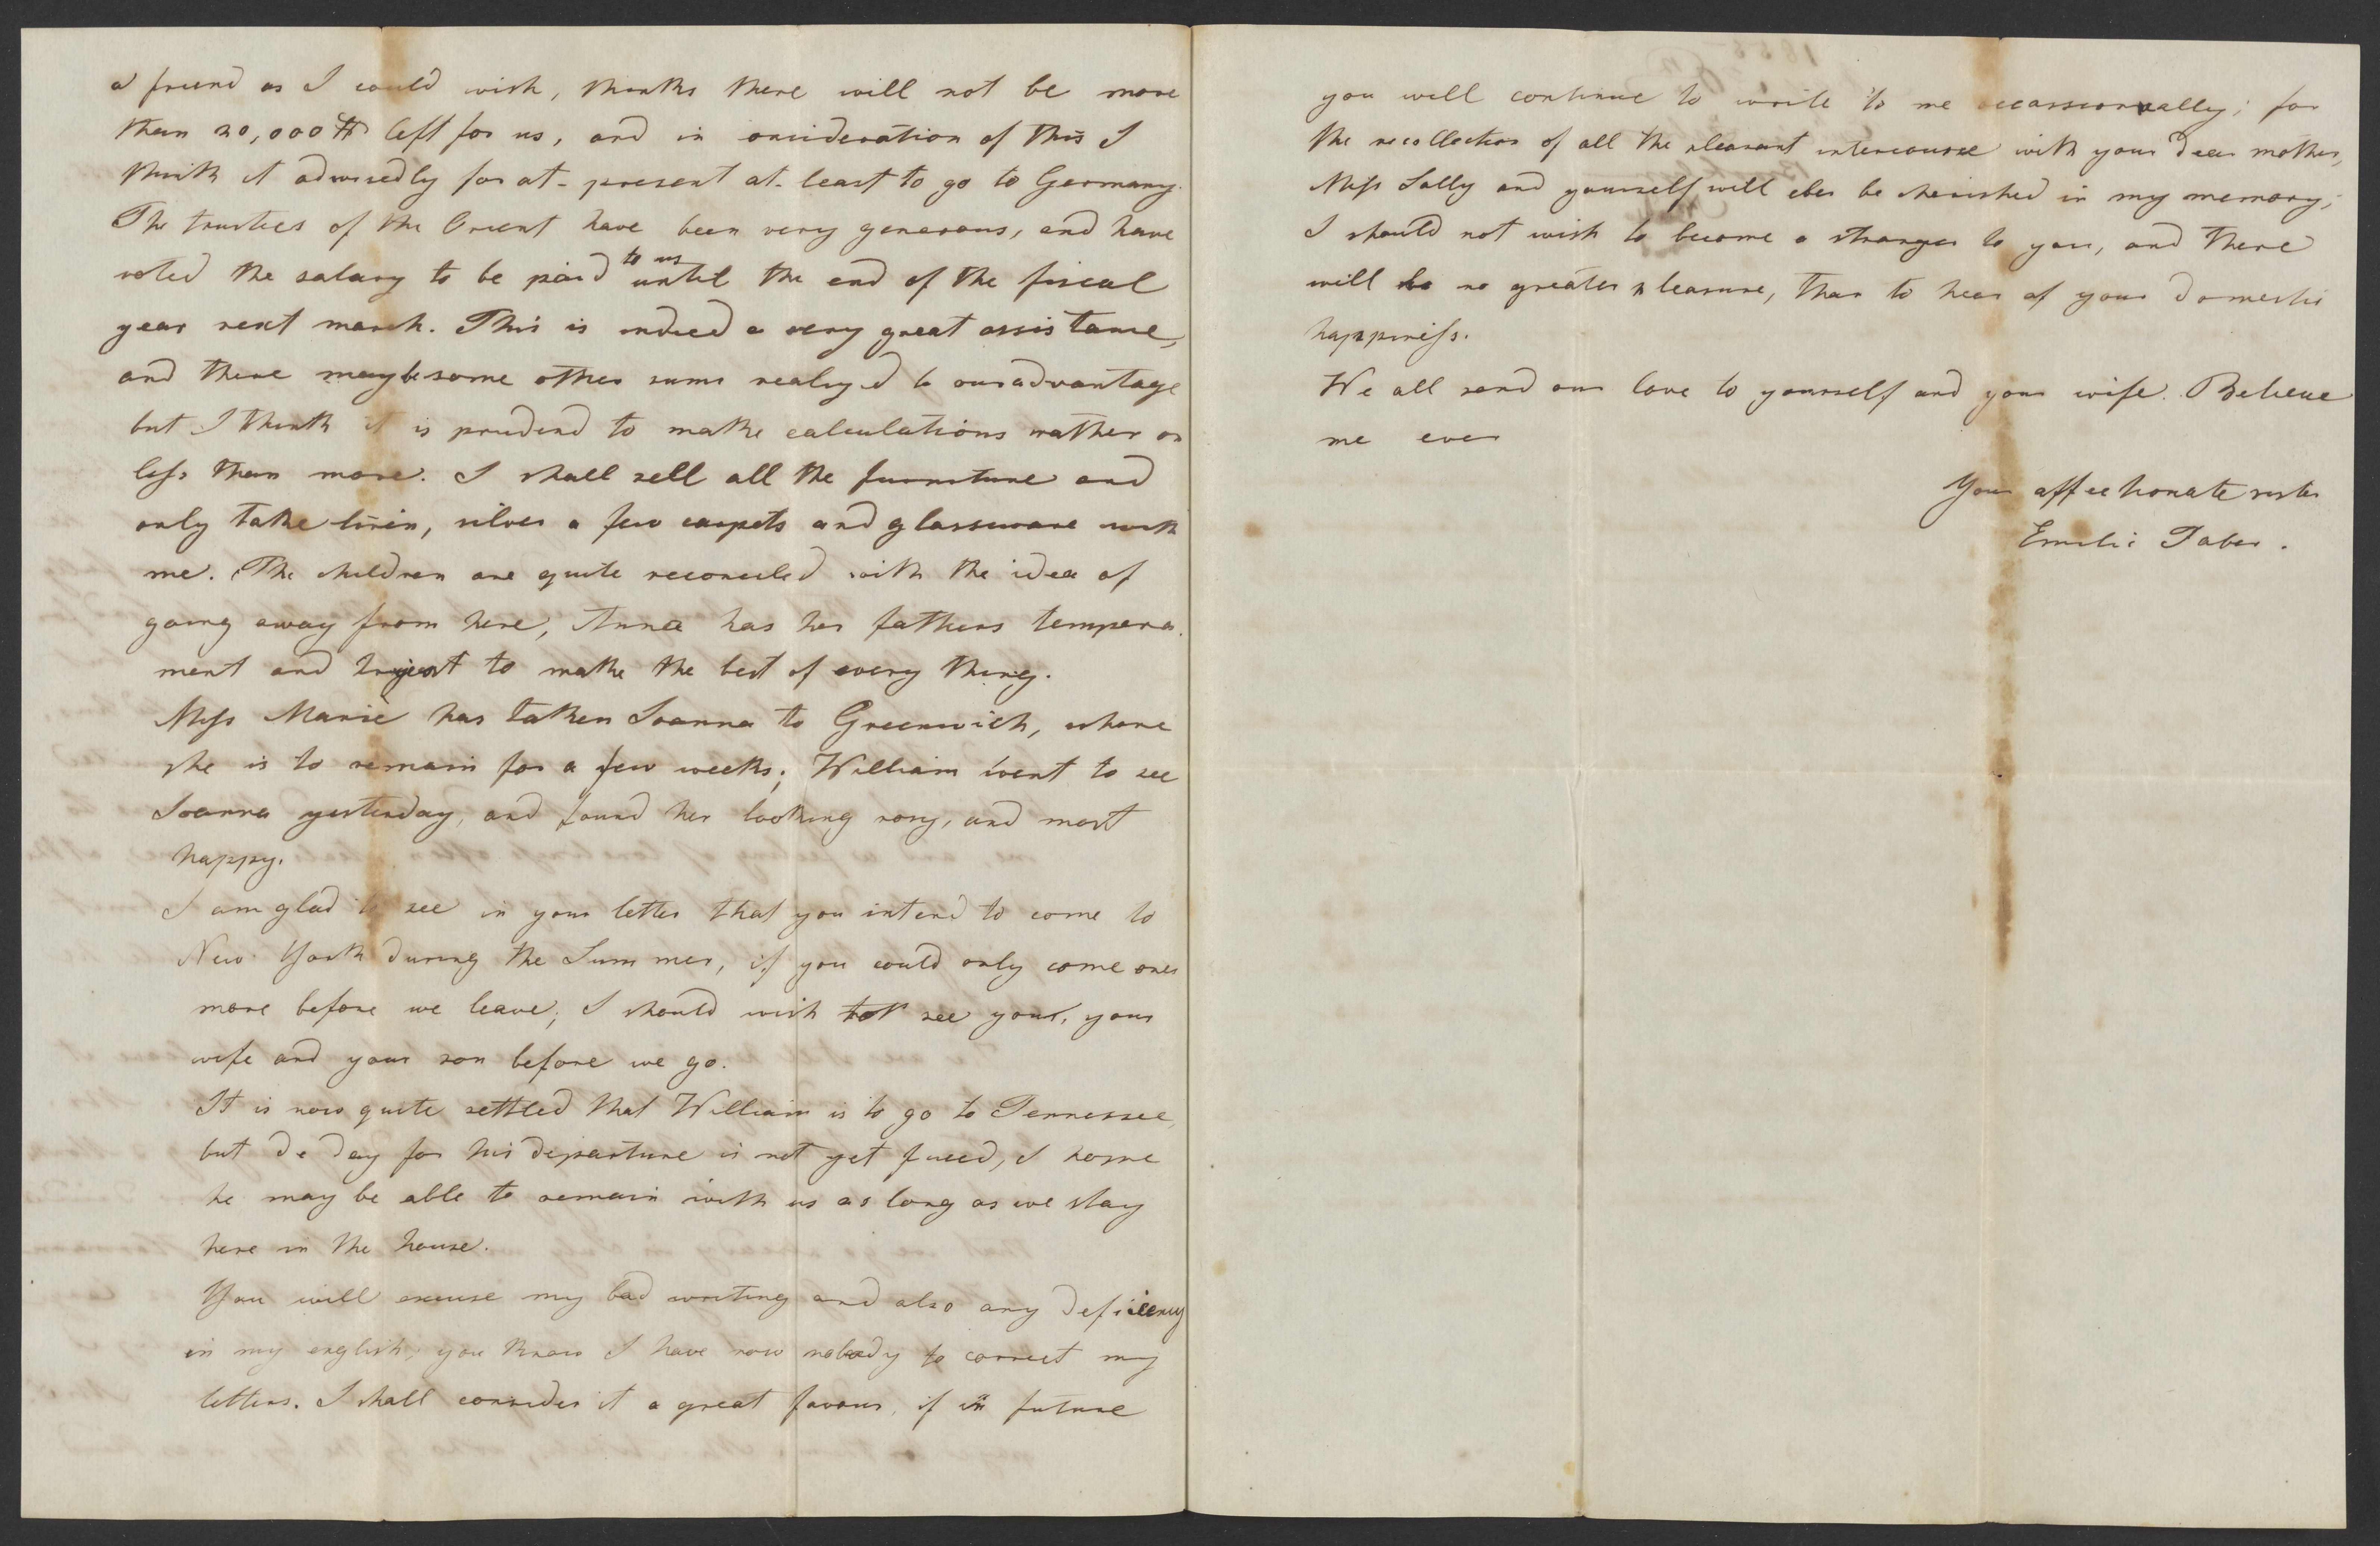 a friend as I could wish, thinks there will not be more
than 20,000 $ left for us, and in onsideration of this I
think it adwisedly for at-present at-least to go to Germany.
The trustees of the Orient have been very generous, and have
voted the salary to be paid to us until the end of the fiscal
year next march. This is indeed a very great assistance,
and there may be some other sums realized to our advantage
but I think it is prudend to make calculations rather on
less than more. I shall sell all the furniture and
only take linen, silver a few carpets and glassware with
me. The children are quite reconciled with the idea of
going away from here, Anna has her fathers tempera-
ment and to make the best of every thing.
Miss Marie has taken Joanna to Greenwich, where
she is to remain for a few weeks; William went to see
Joanna yesterday, and found her looking rosy, and most
happy.
I am glad to see in your letter that you intend to come to
New York during the Summer, if you could only come ones
more before we leave; I should wish to see you, your
wife and your son before we go.
It is now quite settled that William is to go to Tennessee,
but de day for his departure is not yet fixed, I hope
he may be able to remain with us as long as we stay
here in the house.
You will excuse my bad writing and also any deficiency
in my english; you know I have now nobody to correct my
letters. I shall consider it a great favour, if in future
you will continue to write to me occassionally; for
the recollection of all the pleasant intercourse with your dear mother,
Miss Sally and yourself will ever be cherished in my memory;
I should not wish to become a stranger to you, and there
will be no greater pleasure, than to hear of your domestic
happiness.
We all send our love to yourself and your wife. Believe
me ever
Your affectionate sister
Emilie Taber.
1855